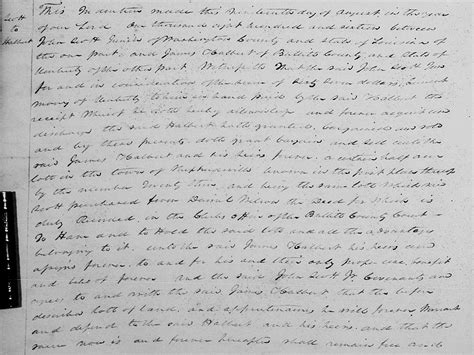 Scott
to
Halbert
This Indenture made this day of August in the year
of our Lord One thousand eight hundred and sixteen between
John Scott Junior of Washington County and state of Louisiana of
the one part and James Halbert of Bullitt County and state of
Kentucky of the other part. Witnesseth That the said John Scott Jun
for and in consideration of the sum of Sixty dollars Current
money of Kentucky to him in hand paid by the said Halbert the
receipt Whereof he doth hereby acknowledge and forever acquit and
discharge the said Halbert hath granted, bargained and sold
and by these presents doth grant bargain and sell unto the
said James Halbert and his heirs forever a certain half acre
lott in the town of Shepherdsville known in the plat thereof
by the number Twenty three and being the same lott which said
Scott purchased from Daniel the Deed for Which is
duly Recorded in the Clerks office of the Bullitt County Court
To Have and to Hold the said lott and all the advantages
belonging to it unto the said James Halbert his heirs and
assigns forever to and for his and their only proper use, benefit
and behoof forever and the said John Scott Jr. Covenants and
agrees to and with the said James Halbert that the before
described lott of land and appurtenances he will forever Warrant
and defend to the said Halbert and his heirs and that the
same now is and forever hereafter shall remain free